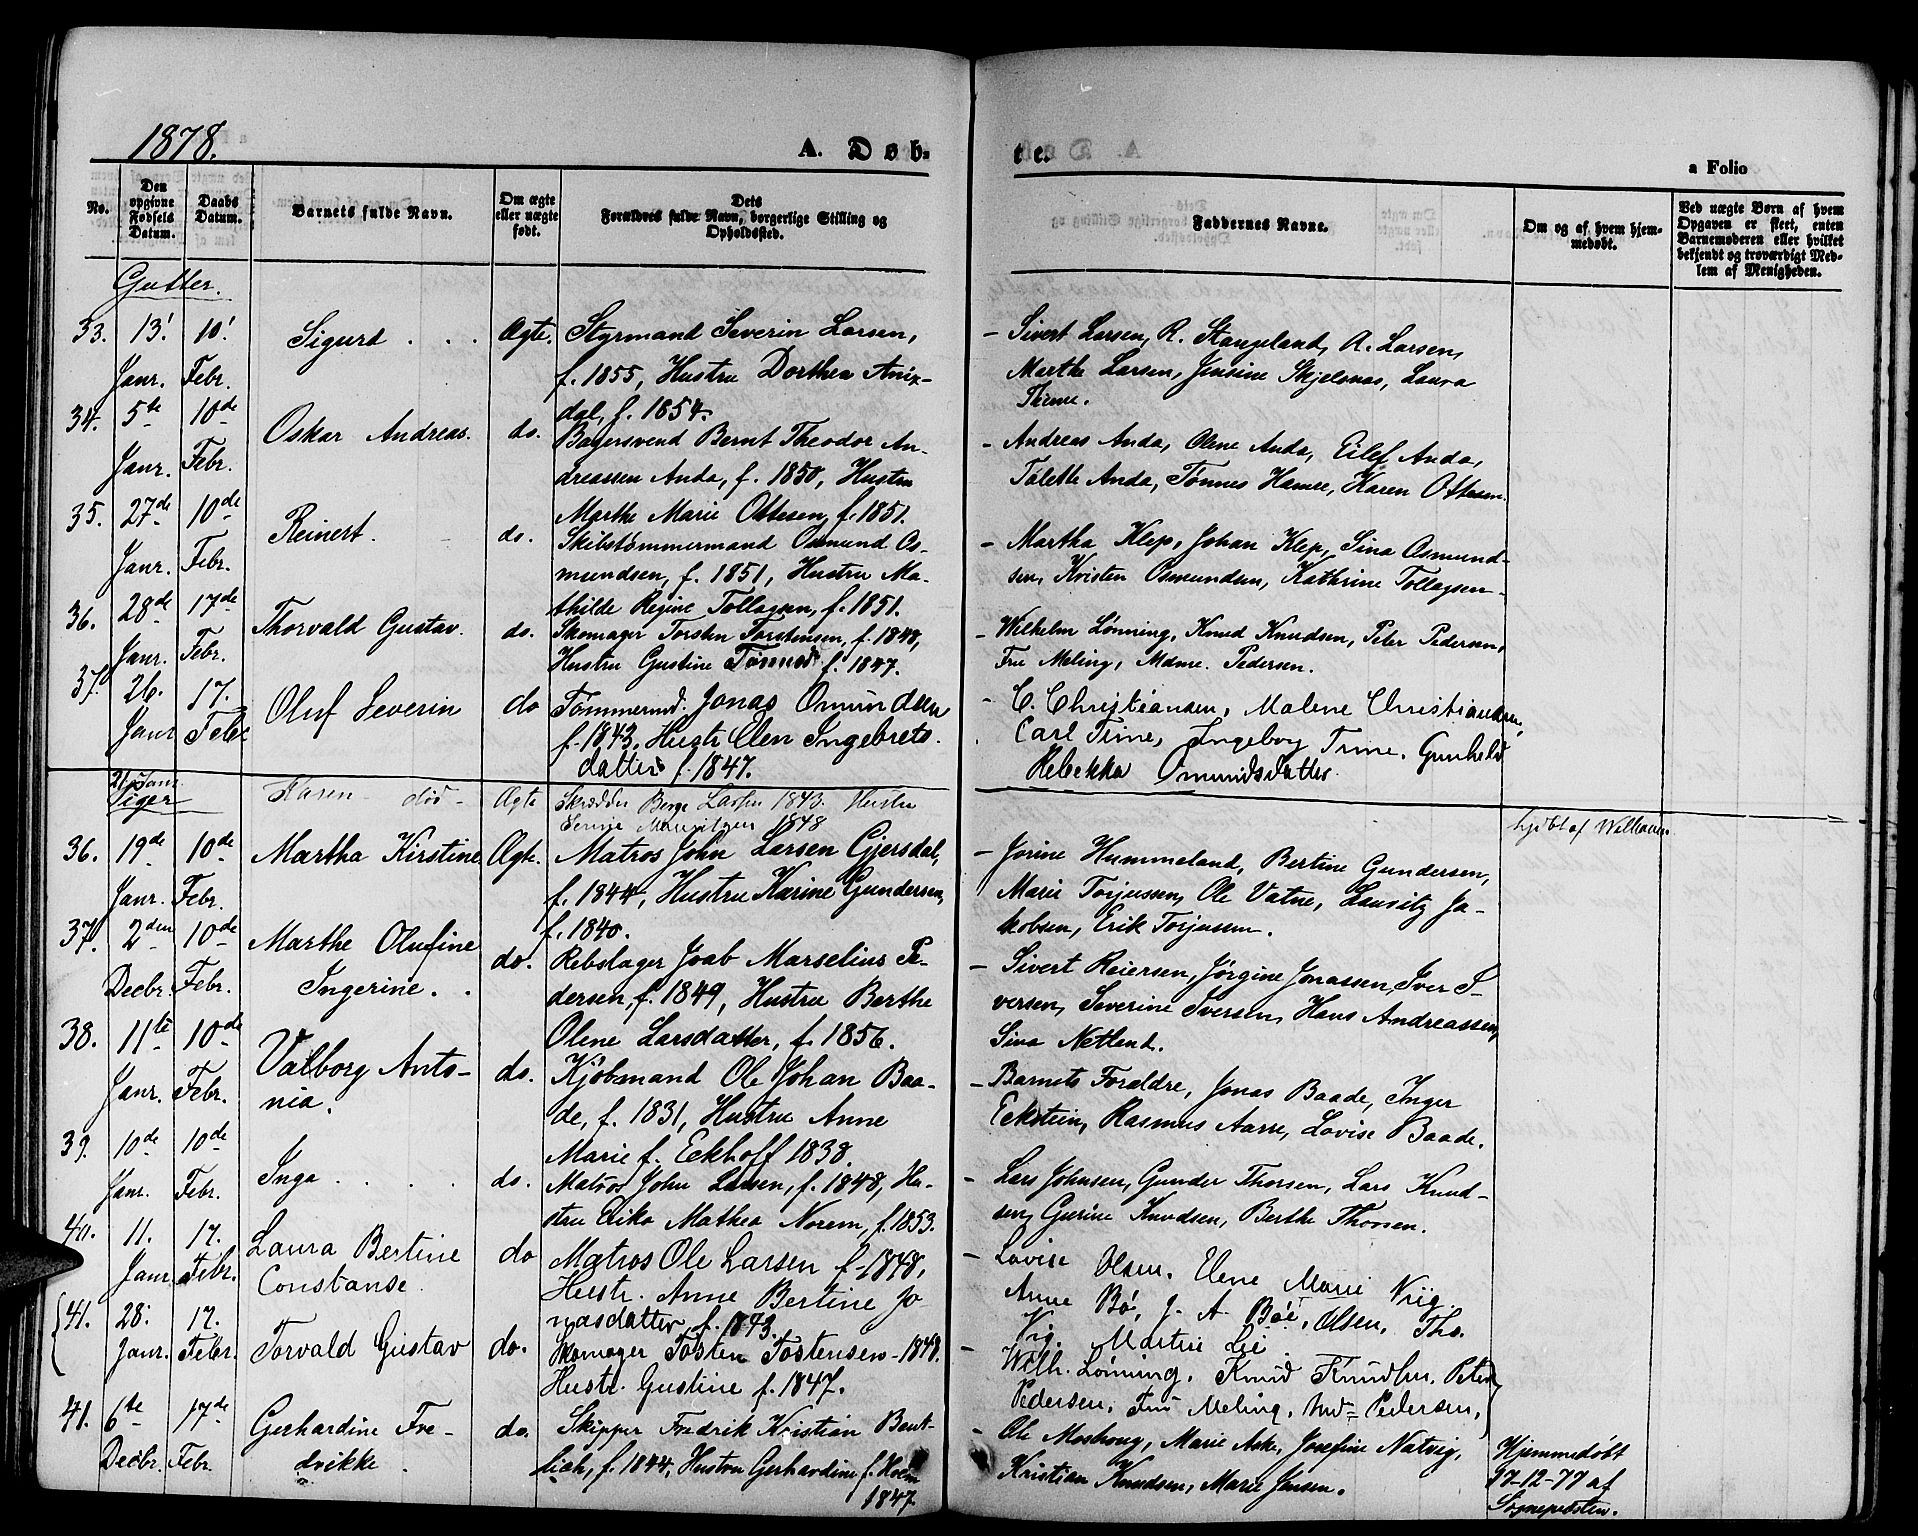 1878.
A. Døb-
te.
a Folio
No.
Den opgivne Fødsels Datum.
Daabs Datum.
Barnets fulde Navn.
Om ægte eller uægte født.
Dets Forældres fulde Navn, borgerlige Stilling og Opholdssted.
Faddernes Navne.
Om og af hvem hjemmedøbt.
Ved uægte Børn af hvem Opgaven er skeet, enten Barnemoderen eller hvilket bekjendt og troværdigt Medlem af Menigheden.
Gutter.
33. 13' Janr. 10' Febr. Sigurd . . . Ægte. Styrmand Severin Larsen,
f. 1855, Hustru Dorthea Anix-
dal, f. 1854.
– Sivert Larsen, R. Stangeland, A. Larsen,
Marthe Larsen, Jensine Skjelsnas, Laura
Thime.
34. 5te Janr. 10de Febr. Oskar Andreas. do. Bagersvend Bernt Theodor An-
dreassen Anda, f. 1850, Hustru
Marthe Marie Ottesen, f. 1851.
– Andreas Anda, Olene Anda, Eilef Anda,
Talette Anda, Tønnes Hamre, Karen Ottesen.
35. 27de Janr. 10de Febr. Reinert. do. Skibstømmermand Osmund Os-
mundsen, f. 1851, Hustru Ma-
thilde Regine Tollagsen, f. 1851.
– Martha Klep, Johan Klep, Sina Osmund-
sen, Kristen Osmundsen, Kathrine Tollagsen.
36. 28de Janr. 17de Febr. Thorvald Gustav. do. Skomager Torsten Torstensen, f. 1848,
Hustru Gustine f. 1847.
– Wilhelm Lønning, Knud Knudsen, Peter Pedersen,
Fru Meling, Mdme. Pedersen.
37. 26. Janr 17. Febr Oluf Severin do Tømmermd. Jonas Omundsen
f. 1843. Hustr Elen Ingebrets-
datter f. 1847.
– C. Christiansen, Malene Christiansen,
Carl Time, Ingeborg Time. Gunhild
Rebekka Omundsdatter.
Piger
21 Janr Karen død Ægte Skrædder Berge Larsen 1843. Hustru
Mauritzen 1848
hjdøbt af
36. 19de Janr. 10de Febr. Martha Kirstine Ægte. Matros John Larsen Gjersdal,
f. 1844, Hustru Karine Gundersen,
f. 1840.
– Jorine Hummeland, Bertine Gundersen,
Marie Torjussen, Ole Vatne, Lausitz Ja-
kobsen, Erik Torjussen.
37. 2den Decbr. 10de Febr. Marthe Olufine
Ingerine. . do. Rebslager Joab Marselius Pe-
dersen, f. 1849, Hustru Berthe
Olene Larsdatter, f. 1856.
– Sivert Reiersen, Jørgine Jonassen, Iver I-
versen, Severine Iversen, Hans Andreassen,
Sina Netland.
38. 11te Janr. 10de Febr. Valborg Anto-
nia. do. Kjøbmand Ole Johan Baa-
de, f. 1831, Hustru Anne
Marie f. Eckhoff 1838.
– Barnets Forældre, Jonas Baade, Inger
Eckstein, Rasmus Aarre, Lovise Baade.
39. 10de Janr. 10de Febr. Inga . . . . do. Matros John Larsen, f. 1848, Hu-
stru Eika Mathea Norem, f. 1853.
– Lars Johnsen, Gunder Thorsen, Lars Knud-
sen, Gurine Knudsen, Berthe Thorsen.
40. 11. Janr. 17. Febr. Laura Bertine
Constanse. do Matros Ole Larsen f. 1848,
Hustr. Anne Bertine Jo-
nasdatter f. 1843.
– Lovise Olsen. Elene Marie Viig.
Anne Bø, J. A. Bøe, Olsen, Tho.
Vig. Martin Lie
41. 28. Janr. 17. Febr. Torvald Gustav do. Skomager Tosten Tostensen 1848.
Hustr. Gustine f. 1847.
– Wilh. Lønning. Knud Knudsen. Peter
Pedersen. Fru Meling. Md= Pedersen.
41. 6te Decbr. 17de Febr. Gerhardine Fre-
drikke . do. Skipper Fredrik Kristian Bent-
ziak, f. 1844, Hustru Gerhardine f. Holm
1847.
– Ole Moshoug, Marie Aske, Josefine Natvig,
Kristian Knudsen, Marie Jensen.
Hjemmedøbt
27-12-77 af
Sognepresten.